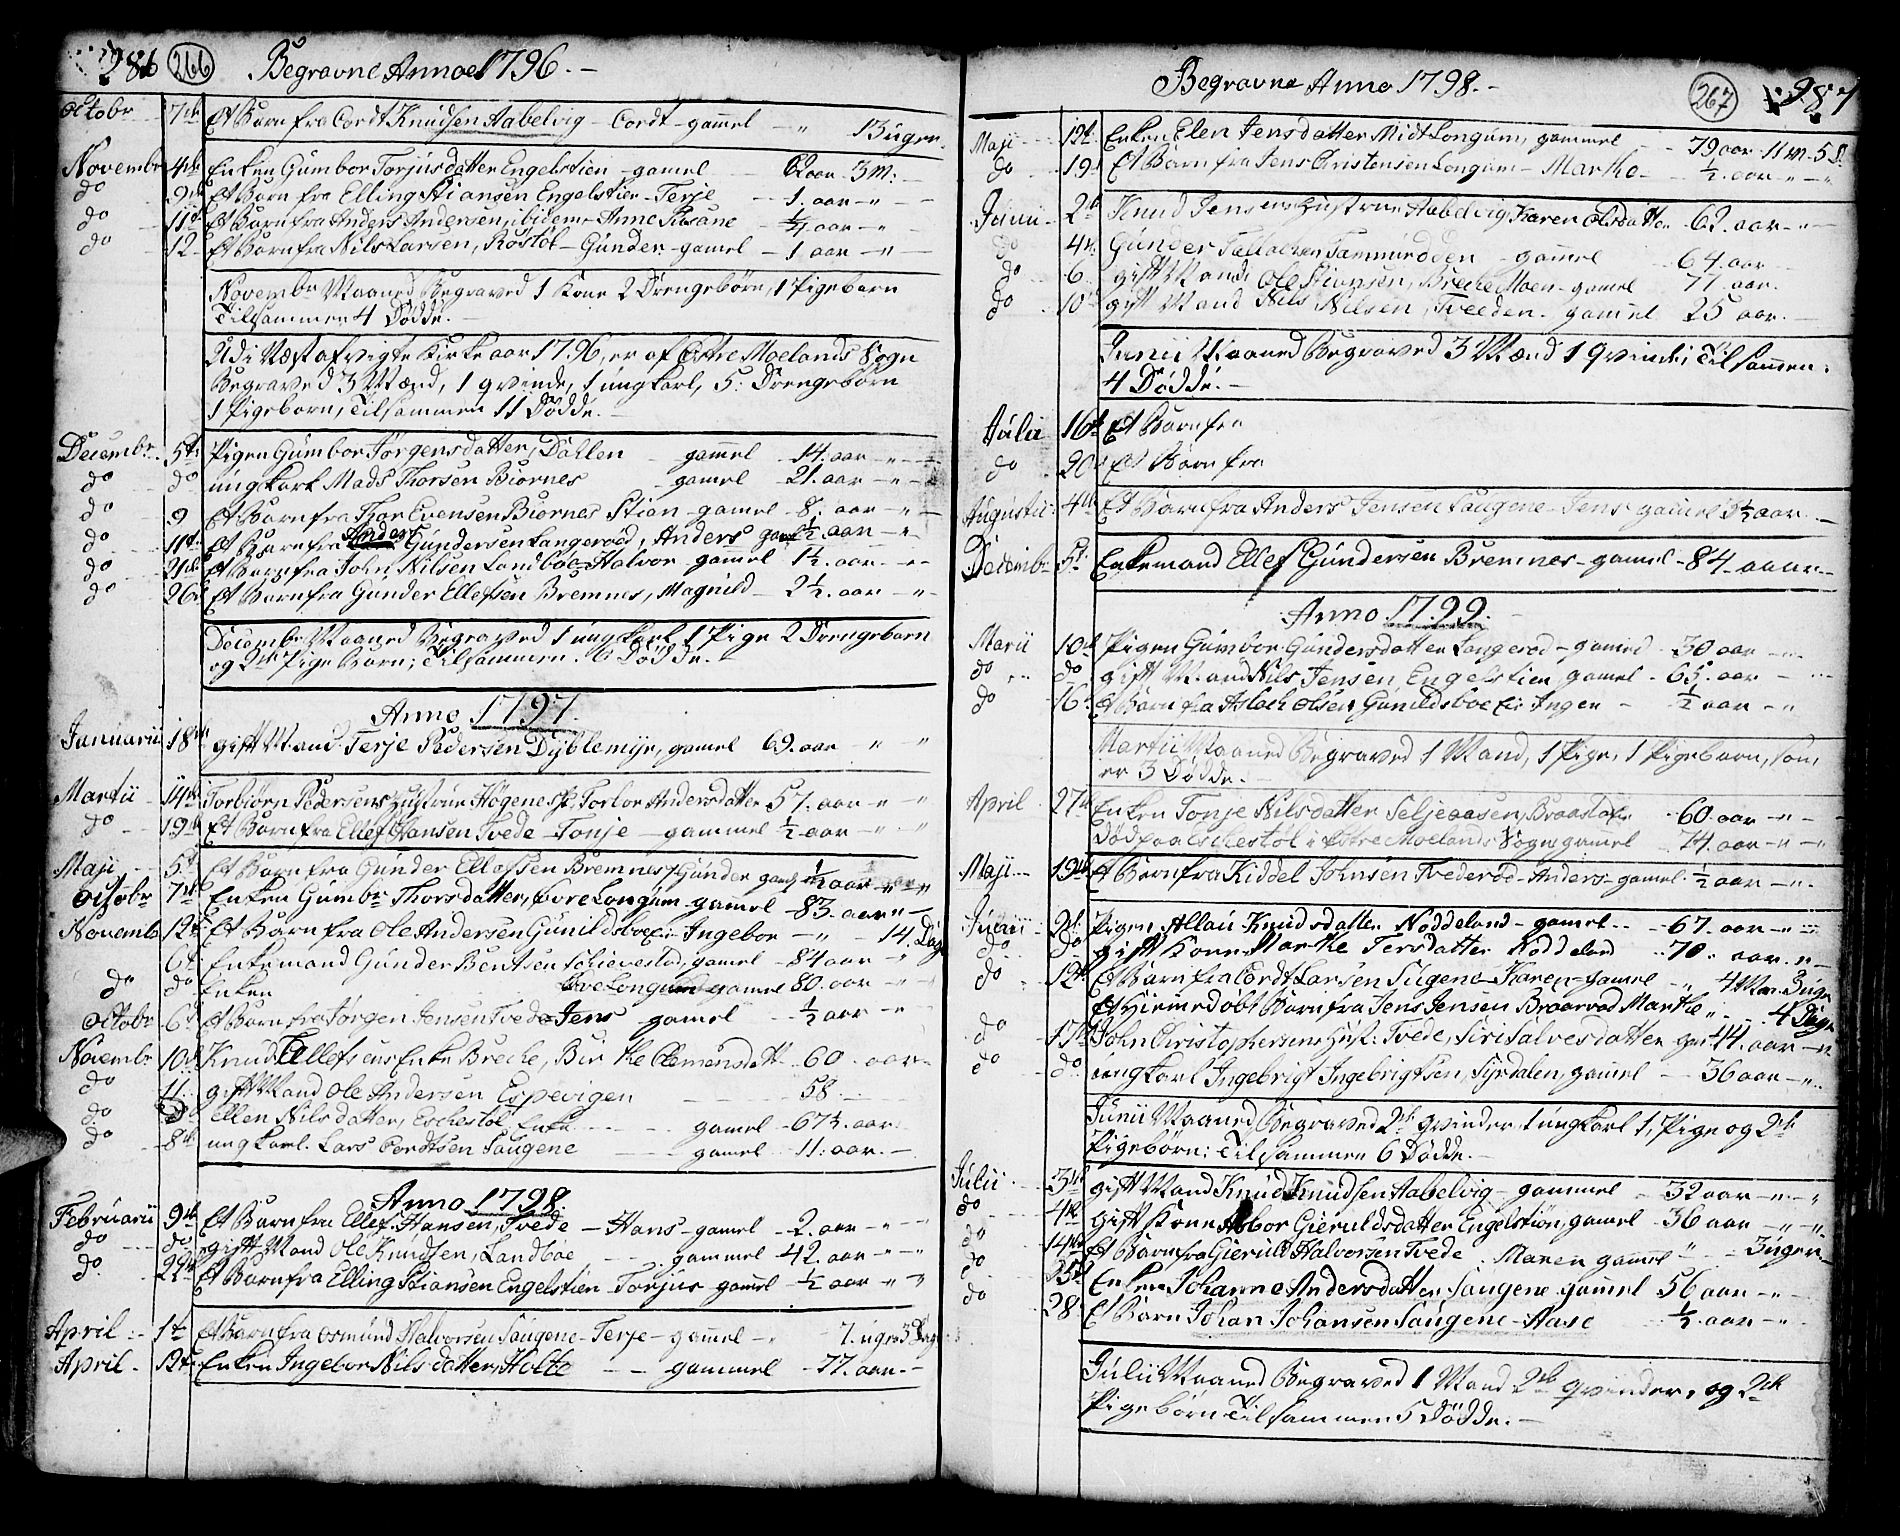 286 266 Begravne Anno 1796. –
Octobr 7de Et Barn fra Cordt Knudsen Aabelvig – Cordt – gammel – " 13 uger.
Novembr 4de Enken Gumbor Torjusdatter Engelstien – gamel 62 aar 3 m:
do 9de Et Barn fra Elling Stiansen Engelstien – Terje – 1. aar – "
do 11te Et Barn fra Anders Andersen, ibidem – Anne Susane ¼ aar – "
do 12 Et Barn fra Nils Larsen, Röstöl – Gunder – gamel – 1 aar – "
Novembr Maaned Begraved 1 Kone 2 Drengebörn, 1 Pigebarn
Tilsammen 4 Dödde. –
Udi Næst afvigte Kirke aar 1796, er af Östre Moelands Sogn
Begraved 3 Mænd, 1 qvinde, 1 ungkarl, 5: Drengebörn
1 Pigebarn, Tilsammen 11 Dödde. –
Decembr. 5te Pigen Gumbor Jörgensdatter, Dahlen gamel – 14. aar – "
do do ungkarl Mads Thorsen Biornes gamel 21. aar – "
do 9 Et Barn fra Thor Evensen Biornes Stian – gamel – 8. aar – "
do 11te Et Barn fra Anders Gundersen Langeröd, Anders gaml ½ aar – "
do 21de Et Barn fra John Nilsen Landböe Halvor gammel 1½. aar. – "
do 26de Et Barn fra Gunder Ellefsen Bremnes, Magnild – 2½. aar – "
Decembr Maaned Begraved 1 ungkarl 1 Pige 2 Drengebörn
og 2de Pige Börn; Tilsammen. 6 Dödde. –
Anno 1797.
Januarii 18de gift Mand Terje Pedersen Dyblemyr, gamel 69. aar " "
Martii 14de Torbiörn Pedersens Hustrue Högenes, Torlor Andersdatter 57. aar – " "
do 19de Et Barn fra Ellef Hansen Tvede – Tonje – gammel ½ aar – " "
Maji 5te Et Barn fra Gunder Ellefsen Bremnes, Gunder gaml ½ aar – " "
Octobr 7de Enken Gumbr Thorsdatter, Övre Longum – gamel – 83. aar – " –
Novemb. 12te Et Barn fra Ole Andersen Gunildsboe Ingebor – " – 14. Dage
6te Enkemand Gunder Bentsen Schievestöd, gamel – 84 aar – "
do do Enken Övre Longum gamel 80. aar – "
Octobr 6te Et Barn fra Jörgen Jensen Tvede – Jens gamel – ½ aar – "
Novembr 10de Knud Ellefsens Enke Breche, Birthe Clemensdatt 60. aar.
do 11. gift Mand Ole Andersen Espevigen 58.
do do Ellen Nilsdatter, Eschestöl Enke gamel – 67½. aar.
do 8de ungkarl. Lars Cordtsen Saugene gamel – 11: aar. –
Anno 1798.
Februarii 9de Et Barn fra Ellef Hansen, Tvede – Hans – gamel – 2. aar – " "
do do gift Mand Ole Knudsen, Landböe gammel 42. aar – " "
do 22de Et Barn fra Elling Stiansen Engelstien – Torjus – gamel – ½ aar – " "
April 1te Et Barn fra Osmund Halvorsen Saugene – Terje – gamel – " 7. uger 3 Dag
April. 12te Enken Ingebor Nilsdatter, Holte – – gammel – 77. aar. –
Begravne Anno 1798. – 267 287
Maji 12te Enken Elen Jensdatter Midt Longum, gammel 79 aar 11 M 5 D.
do 19. Et Barn fra Jens Christensen Longum – Marthe – ½. aar – " – "
Junii 2de Knud Jensens Hustrue Aabelvig, Karen Olsdatter 62. aar – " –
do 4de Gunder Tammundden – gammel 64. aar
do 6. gift Mand Ole Stiansen, Breche Moen – gamel 77. aar.
do 10de gift Mand Nils Nilsen, Tveeden. gammel 25 aar. –
Junii Maaned Begraved 3 Mænd 1 qvinde; Tilsammen:
4 Dödde. –
Julii 16de Et Barn fra
do 20de Et Barn fra
Augustii 4de Et Barn fra Anders Jensen Saugene – Jens gamel 3½ aar. –
Decembr 5te Enkemand Ellef Gundersen Bremnes – gamel – 84. aaar. –
Anno 1799.
Martii 10de Pigen Gumbor Gundersdatter Langeröd – gamel 30 aar – " –
do do gift Mand Nils Jensen Engelstien, gamel – 65. aar – "
do 16de Et Barn fra Asloch Olsen Gunildsboe Ingen – ½ aar – "
Martii Maaned Begraved 1 Mand, 1 Pige, 1 Pigebarn, som
er 3 Dödde. –
April 27de Enken Tonje Nilsdatter Seljeaasen, 60. aar – " –
Död paa Eschestöl i Östre Moelands Sogn gamel 74. aar – " –
Maji 19de Et Barn fra Kiddel Johnsen Tvederöd – Anders – gamel. ½ aar – ".
Junii 2de Pigen Allau Knudsdatter Noddeland – gamel – 67. aar – "
do do gift Kone Marthe Tersdatter Noddeland 70. aar. – "
do 12te Et Barn fra Cordt Larsen Sugene – Karen – gamel " 4 Mdr. 3 ugr
Et Hiemedöbt Barn fra Jens Jensen Braarvad Marthe " – 4 Dage
do 17de John Christophersens Hust: Tvede, Siri Salvesdatter gam 44. aar – "
do do ungkarl Ingebrigt Ingebrigtsen, Syrdalen, gamel – 36 aar – "
Junii Maaned Begraved 2de qvinder 1 ungkarl 1, Pige og 2de
Pigebörn; Tilsammen 6 Dödde. –
Julii 3de gift Mand Knud Knudsen Aabelvig – gammel 32 aar – " – "
do 4de gift Kone Abor Gieruldsdatter Engelstien, gamel – 36 aar – " – "
do 14de Et Barn fra Gieruld Halvorsen Tvede. Maren gammel " – 3 uger
do 25de Enken Johanne Andersdatter, Saugene gammel 56 aar – "
do 28 Et Barn Johan Johansen Saugene – Aase ½. aar – "
Julii Maaned Begraved 1 Mand 2de qvinder, og 2de
Pigebörn Tilsammen 5 Dödde. –